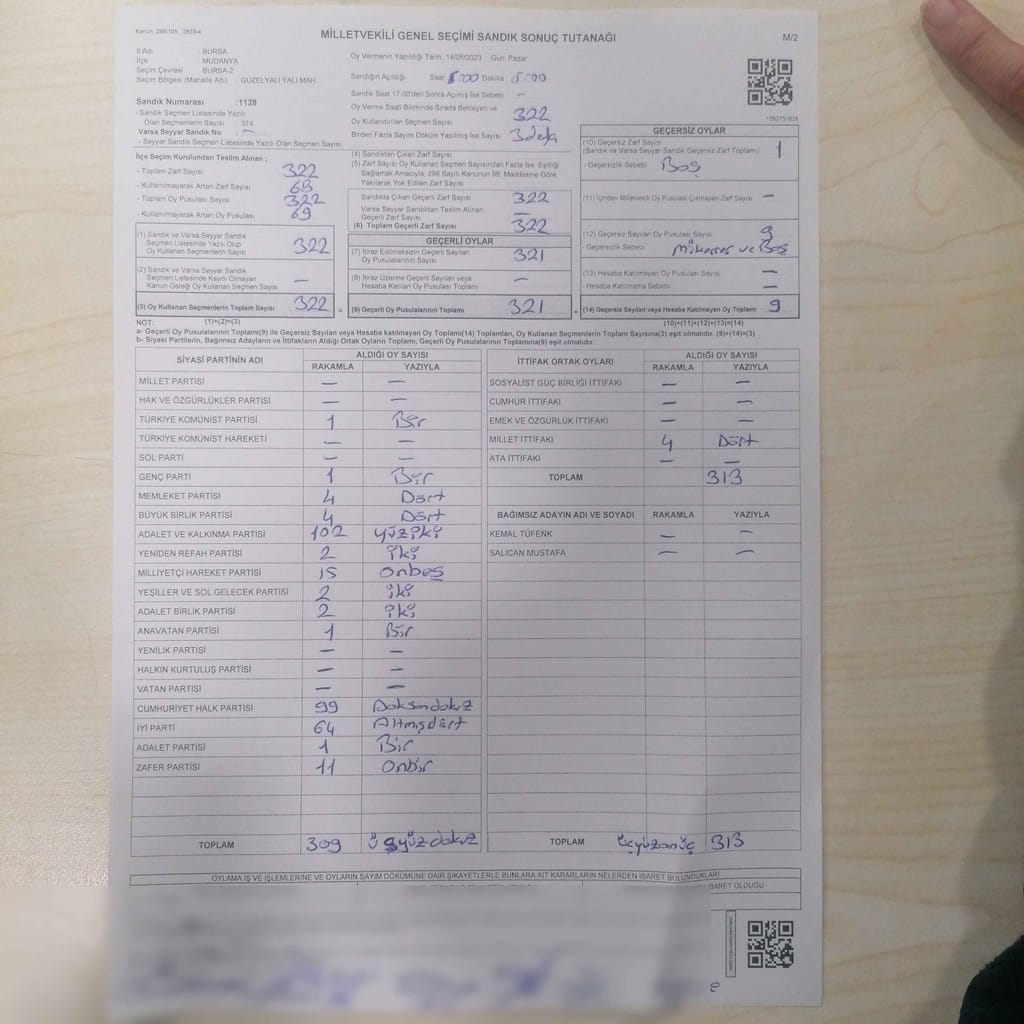 Kanun: 298/105 , 2839/4
MİLLETVEKİLİ GENEL SEÇİMİ SANDIK SONUÇ TUTANAĞI
M/2
İl Adı : BURSA
İlçe : MUDANYA
Seçim Çevresi : BURSA-2
Seçim Bölgesi (Mahalle Adı) : GÜZELYALI YALI MAH.
Sandık Numarası :1128
- Sandık Seçmen Listesinde Yazılı
Olan Seçmenlerin Sayısı : 374
Varsa Seyyar Sandık No : –
- Seyyar Sandık Seçmen Listesinde Yazılı Olan Seçmen Sayısı
Oy Vermenin Yapıldığı Tarih : 14/05/2023 Gün: Pazar
Sandığın Açıldığı Saat : 5:00 Dakika : 5:00
Sandık Saat 17.00'den Sonra Açılmış İse Sebebi –
Oy Verme Saati Bitiminde Sırada Bekleyen ve
Oy Kullandırılan Seçmen Sayısı 322
Birden Fazla Sayım Döküm Yapılmış İse Sayısı 3 defa
1083751828
İlçe Seçim Kurulundan Teslim Alınan ;
- Toplam Zarf Sayısı 322
- Kullanılmayarak Artan Zarf Sayısı 68
- Toplam Oy Pusulası Sayısı 322
- Kullanılmayarak Artan Oy Pusulası 69
(1) Sandık ve Varsa Seyyar Sandık
Seçmen Listesinde Yazılı Olup
Oy Kullanan Seçmenlerin Sayısı 322
(2) Sandık ve Varsa Seyyar Sandık
Seçmen Listesinde Kayıtlı Olmayan
Kanun Gereği Oy Kullanan Seçmen Sayısı –
(3) Oy Kullanan Seçmenlerin Toplam Sayısı 322
(1)+(2)=(3)
(4) Sandıktan Çıkan Zarf Sayısı
(5) Zarf Sayısı Oy Kullanan Seçmen Sayısından Fazla İse, Eşitliği
Sağlamak Amacıyla, 298 Sayılı Kanunun 98. Maddesine Göre
Yakılarak Yok Edilen Zarf Sayısı
Sandıkta Çıkan Geçerli Zarf Sayısı 322
Varsa Seyyar Sandıktan Teslim Alınan
Geçerli Zarf Sayısı –
(6) Toplam Geçerli Zarf Sayısı 322
GEÇERLİ OYLAR
(7) İtiraz Edilmeksizin Geçerli Sayılan
Oy Pusulalarının Sayısı 321
(8) İtiraz Üzerine Geçerli Sayılan veya
Hesaba Katılan Oy Pusulası Toplamı –
= (9) Geçerli Oy Pusulalarının Toplamı 321
GEÇERSİZ OYLAR
(10) Geçersiz Zarf Sayısı
(Sandık ve Varsa Seyyar Sandık Geçersiz Zarf Toplamı) 1
- Geçersizlik Sebebi Boş
(11) İçinden Milletvekili Oy Pusulası Çıkmayan Zarf Sayısı –
(12) Geçersiz Sayılan Oy Pusulası Sayısı 9
- Geçersizlik Sebebi Mükerrer ve Boş
(13) Hesaba Katılmayan Oy Pusulası Sayısı –
- Hesaba Katılmama Sebebi –
+ (14) Geçersiz Sayılan veya Hesaba Katılmayan Oy Toplamı 9
(10)+(11)+(12)+(13)=(14)
NOT:
a- Geçerli Oy Pusulalarının Toplamı(9) ile Geçersiz Sayılan veya Hesaba katılmayan Oy Toplamı(14) Toplamları, Oy Kullanan Seçmenlerin Toplam Sayısına(3) eşit olmalıdır. (9)+(14)=(3)
b- Siyasi Partilerin, Bağımsız Adayların ve İttifakların Aldığı Ortak Oyların Toplamı, Geçerli Oy Pusulalarının Toplamına(9) eşit olmalıdır.
SİYASİ PARTİNİN ADI ALDIĞI OY SAYISI
RAKAMLA YAZIYLA
MİLLET PARTİSİ – –
HAK VE ÖZGÜRLÜKLER PARTİSİ – –
TÜRKİYE KOMÜNİST PARTİSİ 1 Bir
TÜRKİYE KOMÜNİST HAREKETİ – –
SOL PARTİ – –
GENÇ PARTİ 1 Bir
MEMLEKET PARTİSİ 4 Dört
BÜYÜK BİRLİK PARTİSİ 4 Dört
ADALET VE KALKINMA PARTİSİ 102 yüziki
YENİDEN REFAH PARTİSİ 2 iki
MİLLİYETÇİ HAREKET PARTİSİ 15 onbeş
YEŞİLLER VE SOL GELECEK PARTİSİ 2 iki
ADALET BİRLİK PARTİSİ 2 iki
ANAVATAN PARTİSİ 1 Bir
YENİLİK PARTİSİ – –
HALKIN KURTULUŞ PARTİSİ – –
VATAN PARTİSİ – –
CUMHURİYET HALK PARTİSİ 99 Doksandokuz
İYİ PARTİ 64 Altmışdört
ADALET PARTİSİ 1 Bir
ZAFER PARTİSİ 11 Onbir
TOPLAM 309 üçyüzdokuz
İTTİFAK ORTAK OYLARI ALDIĞI OY SAYISI
RAKAMLA YAZIYLA
SOSYALİST GÜÇ BİRLİĞİ İTTİFAKI – –
CUMHUR İTTİFAKI – –
EMEK VE ÖZGÜRLÜK İTTİFAKI – –
MİLLET İTTİFAKI 4 Dört
ATA İTTİFAKI – –
TOPLAM 313
BAĞIMSIZ ADAYIN ADI VE SOYADI RAKAMLA YAZIYLA
KEMAL TÜFENK – –
SALİCAN MUSTAFA – –
TOPLAM üçyüzonüç 313
OYLAMA İŞ VE İŞLEMLERİNE VE OYLARIN SAYIM DÖKÜMÜNE DAİR ŞİKAYETLERLE BUNLARA AİT KARARLARIN NELERDEN İBARET BULUNDUKLARI
İBARET OLDUĞU